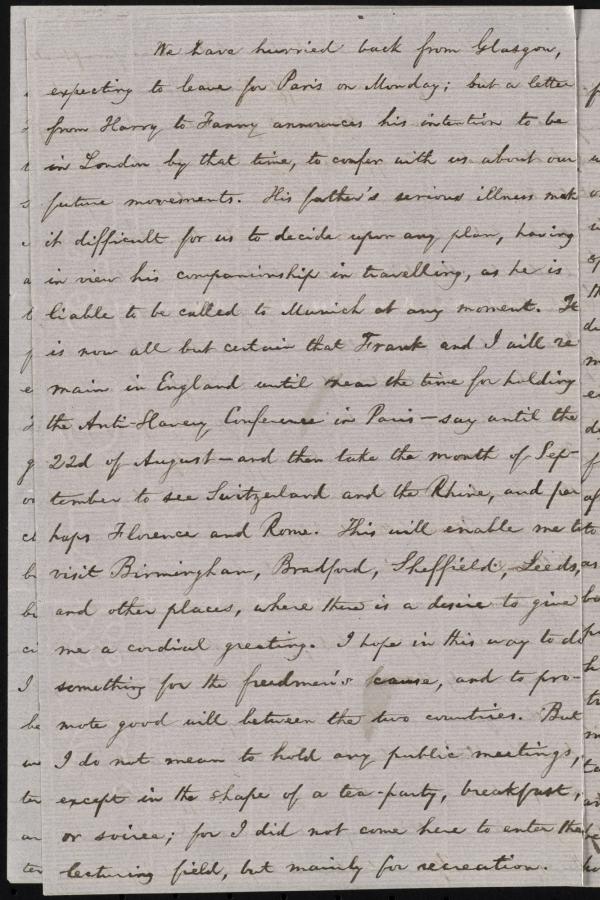 We have hurried back from Glasgow,
expecting to leave for Paris on Monday; but a letter
from Harry to Fanny announces his intention to be
in London by that time, to confer with us about our
future movements. His father's serious illness mak
it difficult for us to decide upon any plan, having
in view his companionship in travelling, as he is
liable to be called to Munich at any moment. It
is now all but certain that Frank and I will re
main in England until near the time for holding
the Anti-Slavery Conference in Paris—say until the
22d of August—and then take the month of Sep-
tember to see Switzerland and the Rhine, and per
haps Florence and Rome. This will enable me to
visit Birmingham, Bradford, Sheffield, Leeds,
and other places, where there is a desire to give
me a cordial greeting. I hope in this way to do
something for the freedmen's cause, and to pro-
mote good will between the two countries. But
I do not mean to hold any public meetings,
except in the shape of a tea-party, breakfast,
or soiree; for I did not come here to enter the
lecturing field, but mainly for recreation.